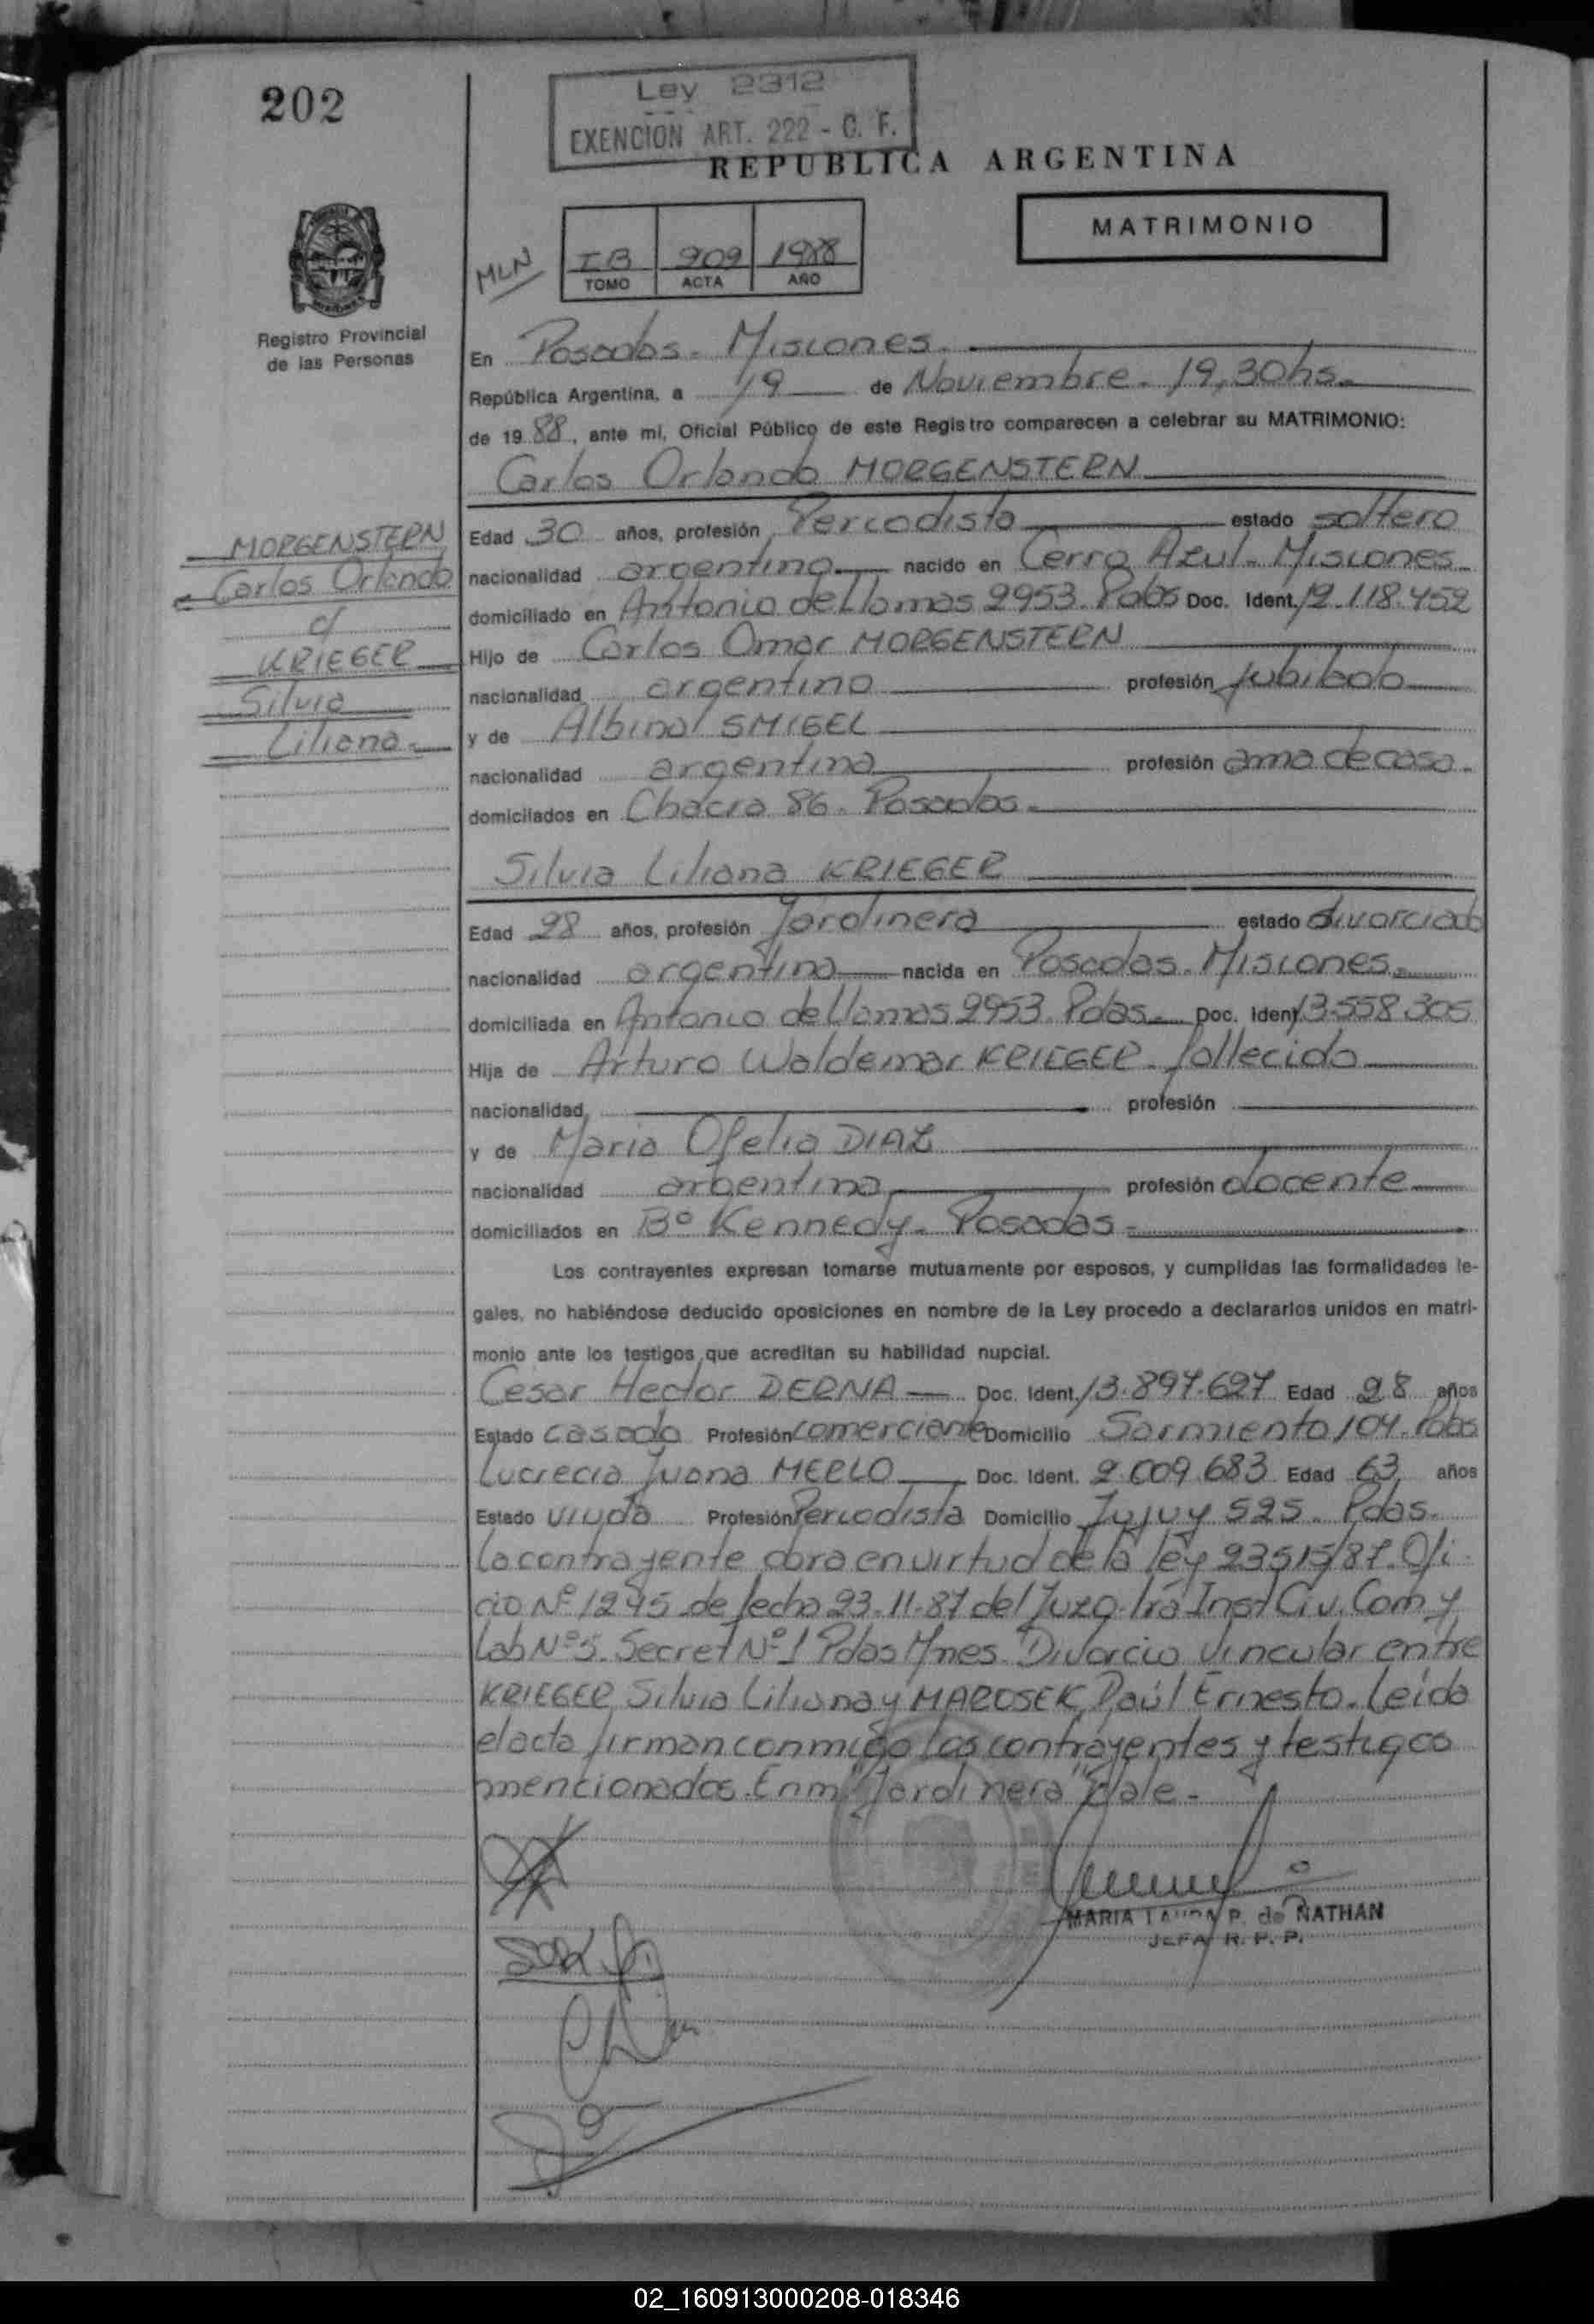 202
Ley 2312
EXENCION ART. 222 - C. F.
REPUBLICA ARGENTINA
MATRIMONIO
MLN
IB 909 1988
TOMO ACTA AÑO
Registro Provincial
de las Personas
En Posadas - Misiones.
República Argentina, a 19 de Noviembre. 19,30hs.
de 19 88, ante mi, Oficial Público de este Registro comparecen a celebrar su MATRIMONIO:
Carlos Orlando MORGENSTERN
MORGENSTERN
Carlos Orlando
c/
KRIEGER
Silvia
Liliana.
Edad 30 años, profesión Periodista estado soltero
nacionalidad argentina nacido en Cerro Azul - Misiones
domiciliado en Antonio de Llamas 2953. Pdas Doc. Ident. 12.118.452
Hijo de Carlos Omar MORGENSTERN
nacionalidad argentino profesión jubilado
y de Albina SMIGEL
nacionalidad argentina profesión ama de casa.
domiciliados en Chacra 86 - Posadas.
Silvia Liliana KRIEGER
Edad 28 años, profesión Jardinera estado divorciada
nacionalidad argentina nacida en Posadas - Misiones.
domiciliada en Antonio de Llamas 2953. Pdas. Doc. Ident 13.558.305
Hija de Arturo Waldemar KRIEGER - fallecido
nacionalidad profesión
y de Maria Ofelia DIAZ
nacionalidad argentina profesión docente
domiciliados en Bº Kennedy - Posadas -
Los contrayentes expresan tomarse mutuamente por esposos, y cumplidas las formalidades le-
gales, no habiéndose deducido oposiciones en nombre de la Ley procedo a declararlos unidos en matri-
monio ante los testigos que acreditan su habilidad nupcial.
Cesar Hector DERNA Doc. Ident. 13.897.627 Edad 28 años
Estado casado Profesión comerciante Domicilio Sarmiento 104. Pdas
Lucrecia Juana MERLO Doc. Ident. 2.009.683 Edad 63 años
Estado viuda Profesión Periodista Domicilio Jujuy 525. Pdas.
La contrayente obra en virtud de la ley 23515/87. Ofi-
cio Nº 1245 de fecha 23-11-87 del Juzg. 1ra Inst Civ. Com y
Lab Nº5. Secret Nº 1 Pdas Mnes. Divorcio Vincular entre
KRIEGER, Silvia Liliana y MAROSEK, Raúl Ernesto. Leida
el acta firman conmigo los contrayentes y testigos
mencionados. Enm "Jardinera" Vale -
MARIA LAURA P. de NATHAN
JEFA R. P. P.
02_160913000208-018346